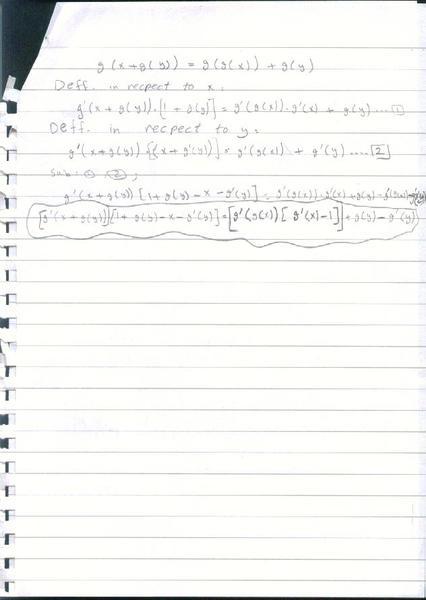 g(x+g(y)) = g(g(x)) + g(y)
Deff. in recpect to x.
g'(x + g(y)).[1 + g(y)] = g'(g(x)).g'(x) + g(y) ....1
Deff. in recpect to y.
g'(x+g(y)) [(x + g'(y))] = g'(g(x)) + g'(y) .....2
Sub. 1 2 ;
g'(x+g(y)) [1+g(y) - x - g'(y)] = g'(g(x)).g'(x) + g(y) - g'(g(x)) - g'(y)
[g'(x + g(y))][1 + g(y) - x - g'(y)] = [g'(g(x)) [g'(x) - 1]] + g(y) - g'(y)